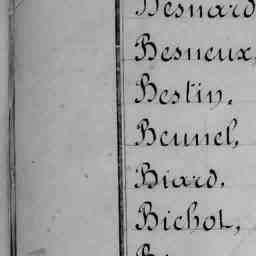 Besnard
Besneux,
Bestin,
Beunel,
Biard,
Bichot,